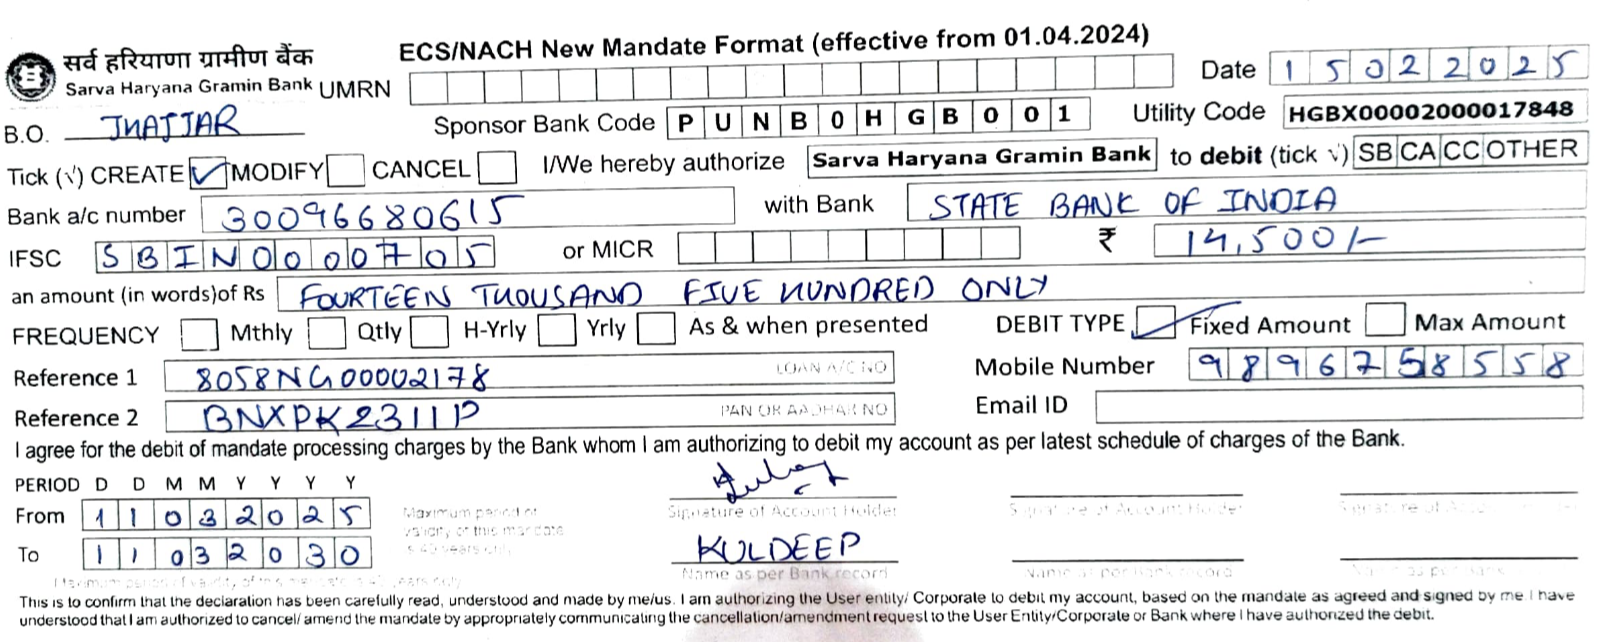 ECS/NACH New Mandate Format (effective from 01.04.2024)
सर्व हरियाणा ग्रामीण बैंक
Sarva Haryana Gramin Bank UMRN Date 15022025
B.O. JHAJJAR Sponsor Bank Code PUNB0HGB001 Utility Code HGBX00002000017848
Tick (√) CREATE ✓ MODIFY CANCEL I/We hereby authorize Sarva Haryana Gramin Bank to debit (tick √) SB CA CC OTHER
Bank a/c number 30096680615 with Bank STATE BANK OF INDIA
IFSC SBIN0000705 or MICR ₹ 14,500/-
an amount (in words)of Rs FOURTEEN THOUSAND FIVE HUNDRED ONLY
FREQUENCY Mthly Qtly H-Yrly Yrly As & when presented DEBIT TYPE ✓ Fixed Amount Max Amount
Reference 1 8058NG00002178 LOAN A/C NO Mobile Number 9896758558
Reference 2 BNXPK2311P PAN OR AADHAR NO Email ID
I agree for the debit of mandate processing charges by the Bank whom I am authorizing to debit my account as per latest schedule of charges of the Bank.
PERIOD D D M M Y Y Y Y
From 11032025 Maximum period of validity of this mandate is 40 years only Signature of Account Holder Signature of Account Holder Signature of
To 11032030 KULDEEP
Maximum period of validity of this mandate is 40 years only Name as per Bank record Name as per Bank record Name as per Bank
This is to confirm that the declaration has been carefully read, understood and made by me/us. I am authorizing the User entity/ Corporate to debit my account, based on the mandate as agreed and signed by me I have
understood that I am authorized to cancel/ amend the mandate by appropriately communicating the cancellation/amendment request to the User Entity/Corporate or Bank where I have authorized the debit.